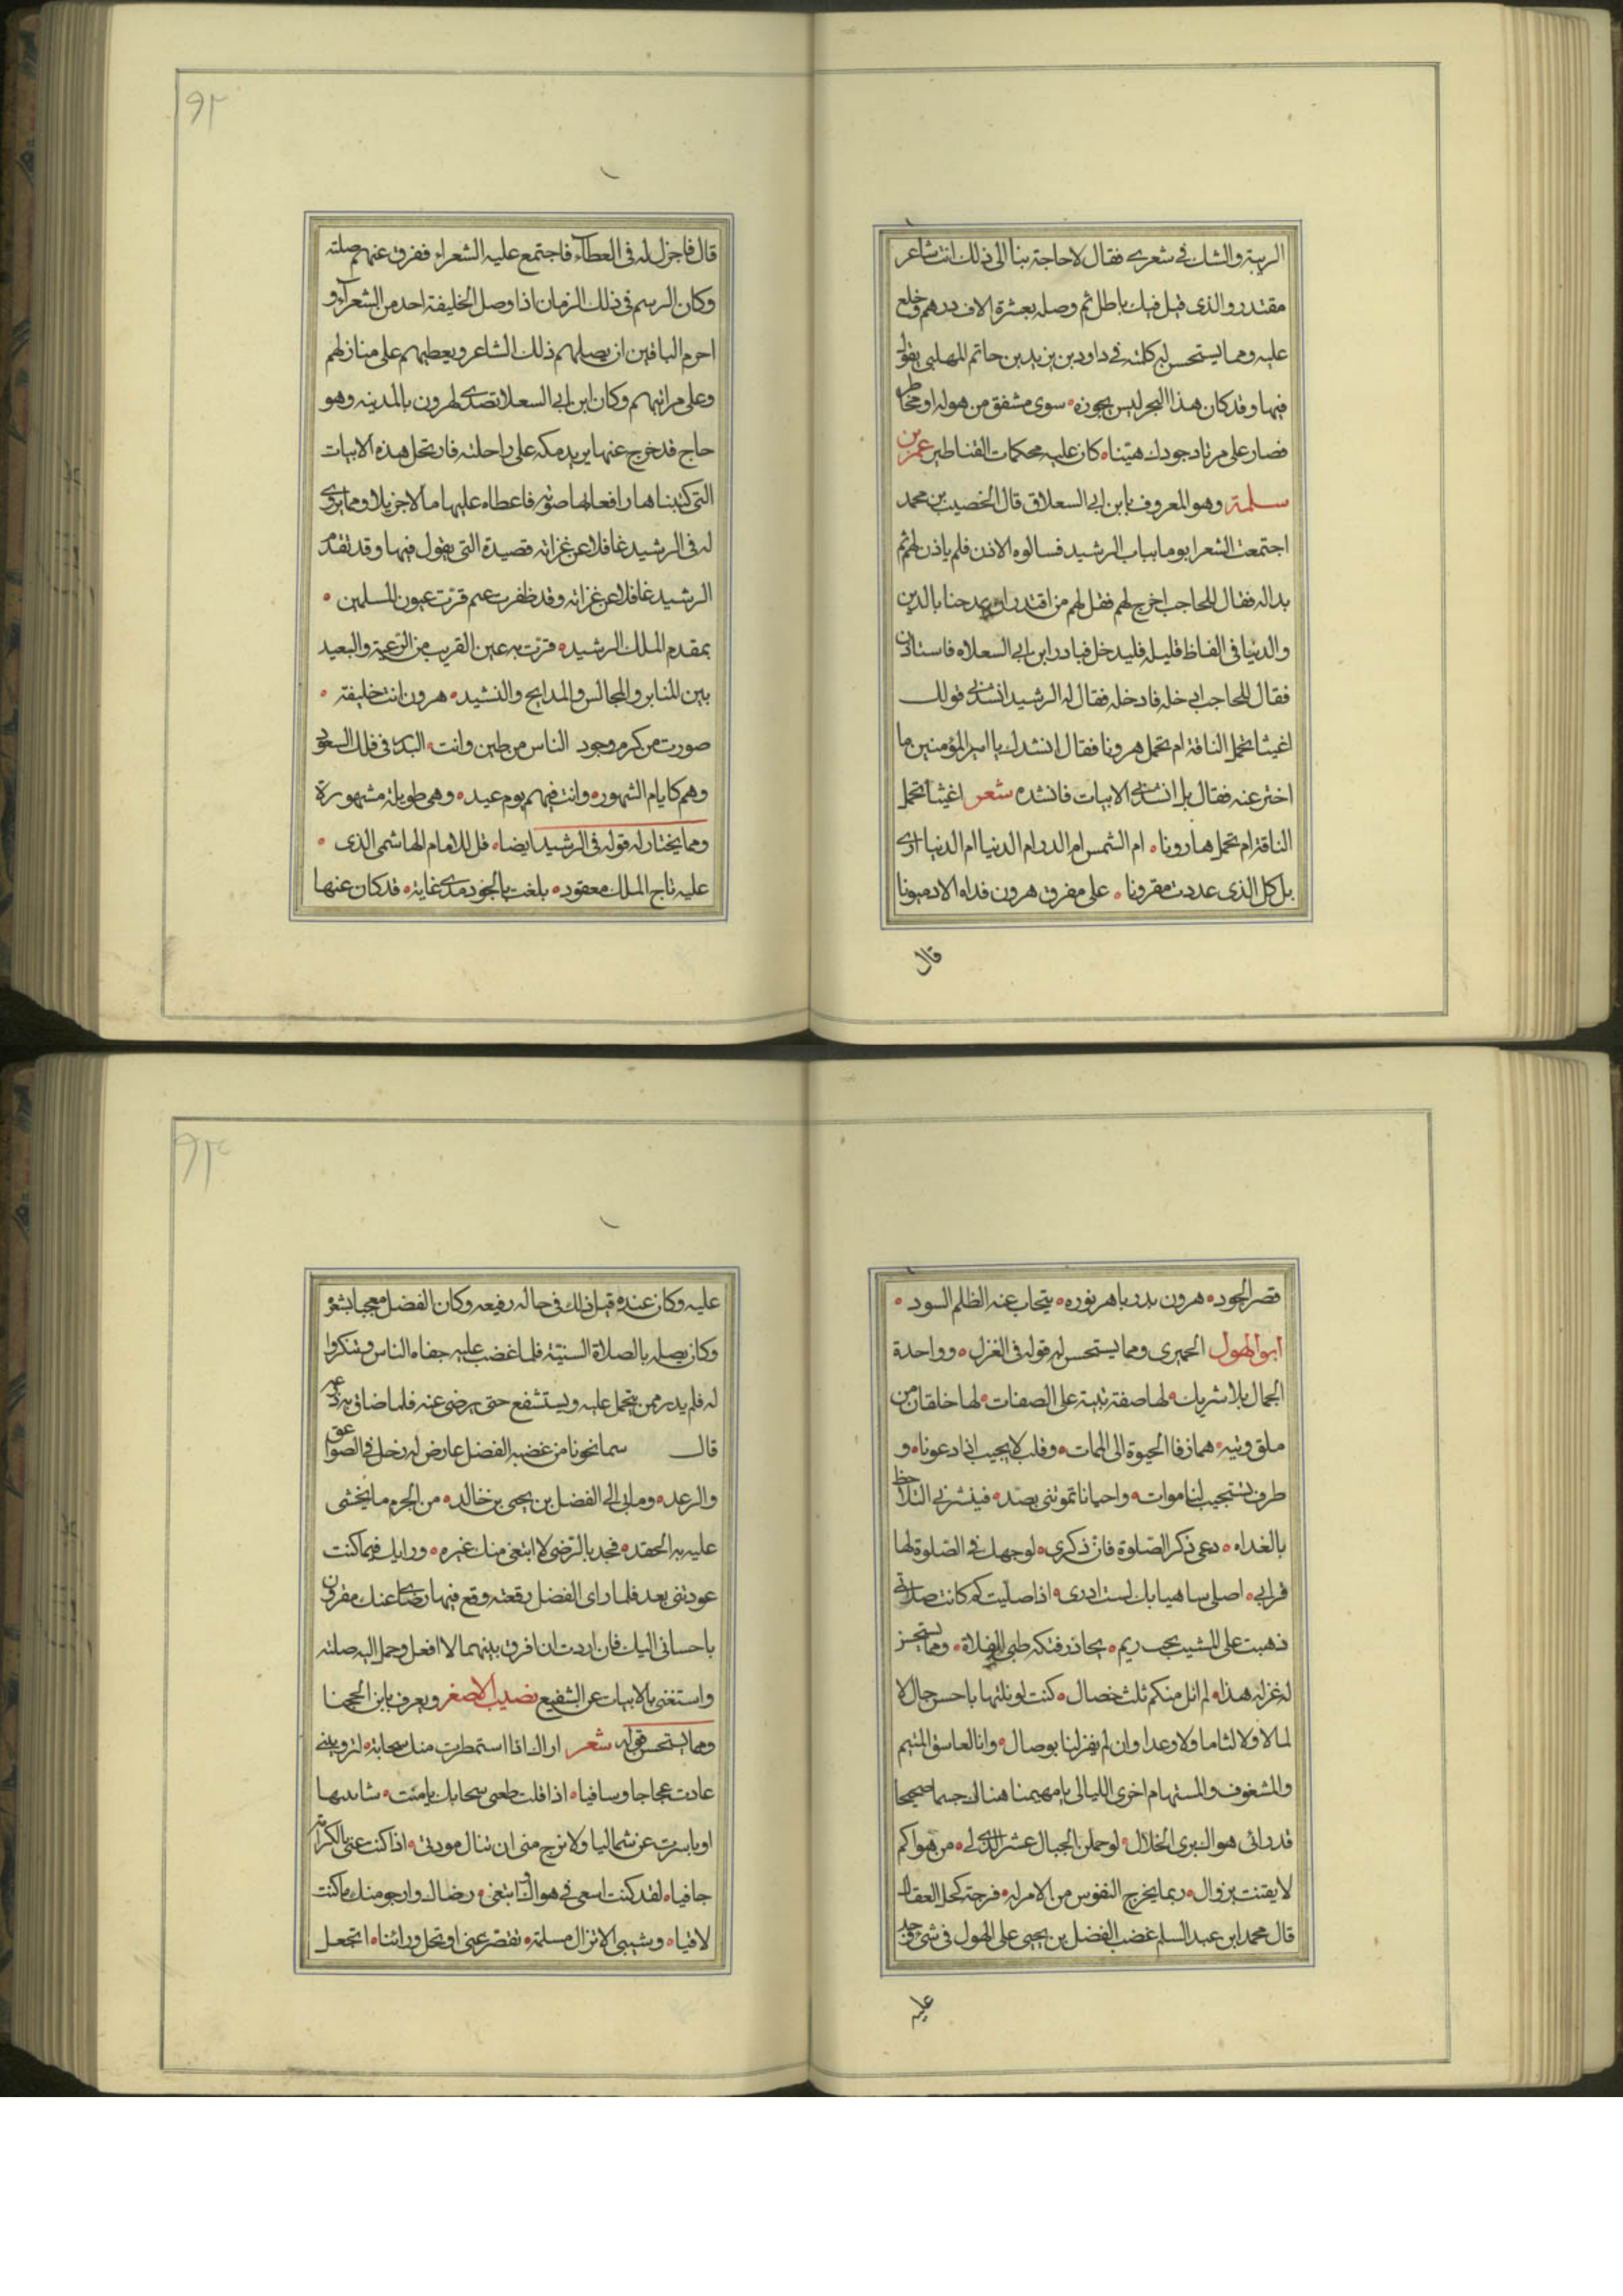 الريبة والشك في شعري فقال لا حاجة بنا الى ذلك انت شاعر
مقتدر والذى قيل فيك باطل ثم وصله بعشرة الاف درهم وخلع
عليه ومما يستحسن له كلمته فى داود بن يزيد بن حاتم المهلبى يقول
فيها وقد كان هذا البحر ليس يجوزه سوى مشفق من هوله او مخاطر
فصار على مرتاد جودك هينا كان عليه محكمات القناطير عمر بن
سلمة وهو المعروف بابن ابى السعلاق قال الخصيب بن محمد
اجتمعت الشعرا يوما بباب الرشيد فسالوه الاذن فلم ياذن لهم ثم
بدا له فقال للحاجب اخرج لهم فقل لهم من اقتدر ان يمدحنا بالدين
والدنيا فى الفاظ قليله فليدخل فبادر ابن ابى السعلاه فاستاذن
فقال للحاجب ادخله فادخله فقال له الرشيد انشدنى قولك
اغيثا تحمل الناقة ام تحمل هرونا فقال انشدك يا امير المؤمنين ما
اخترعنه فقال بل انشدنى الابيات فانشده شعر اغيثا تحمل
الناقة ام تحمل هارونا ام الشمس ام البدر ام الدنيا ام الدنيا
بل كل الذى عددت مقرونا على مفرق هرون فداه الادميونا
قال
٩٢
قال فاجزل له فى العطاء فاجتمع عليه الشعراء ففرق عنهم صلته
وكان الرسم فى ذلك الزمان اذا وصل الخليفة احد من الشعراء و
احرم الباقين ان يصلهم ذلك الشاعر ويعطيهم على منازلهم
وعلى مراتبهم وكان ابن ابى السعلا تصدى لهرون بالمدينه وهو
حاج قد خرج عنها يريد مكه على راحلته فارتحل هذه الابيات
التى كتبناها رافعا لها صوته فاعطاه عليها مالا جزيلا ومما يروى
له فى الرشيد غافلا عن غزاته قصيدة التى يقول فيها وقد تقدم
الرشيد غافلا عن غزاته وقد ظفرت عم قرت عيون المسلمين
بمقدم الملك الرشيد قرت به عين القريب من الرعية والبعيد
بين المنابر والمجالس والمدايح والنشيد هرون انت خليفة
صورت من كرم وجود الناس من طين وانت البدر فى فلك السعود
وهم كايام الشهور وانت فيهم يوم عيد وهى طويلة مشهورة
ومما يختار له قوله فى الرشيد ايضا قل للامام الهاشمى الذى
عليه تاج الملك معقود بلغت بالجود مدى غاية قد كان عنها
قصر الجود هرون بدر باهر نوره يتجاب عنه الظلم السود
ابو الهول الحميرى ومما يستحسن له قوله فى الغزل وواحدة
الجمال بلا شريك لها صفة تتيه على الصفات لها خلقان من
ملق وتيه همازفا الحيوة الى الممات وقلب لا يجيب اذا دعونا و
طرف تستجيب لنا موات واحيانا تموتنى بصد فينشرنى التلاحظ
بالغداه دعى ذكر الصلوة فان ذكرى لوجهك فى الصلوة لها
قرابى اصلى ساهيا بك لست ادرى اذا صليت كم كانت صلاتى
ذهبت على المشيب بجب ريم يحاذر فتكه ظبى الفلاة ومما
له غزله هذا لم انل منكم ثلث خصال كنت لو نلتها باحسن حال لا
لمالا ولا لثاما ولا وعدا وان لم يفز لنا بوصال وانا العاسق المتيم
والمشغوف والمستهام اخرى الليالى يا مهيمنا هنال جسما صحيحا
قد رانى هواك برى الخلال لو حملن الجبال عشر الذى لى من هواكم
لا يقنت بزوال ربما يخرج النفوس من الامر له فرجة كحل العقال
قال محمد ابن عبد السلم غضب الفضل بن يحيى على الهول فى شى وجد
عليه
٩٣
عليه وكان عنده قبل ذلك فى حاله رفيعه وكان الفضل معجبا بشعره
وكان يصله بالصلاة السنية فلما غضب عليه جفاه الناس وتنكروا
له فلم يدر بمن يتحمل عليه ويستشفع حتى يرضى عنه فلما ضاق به ذرعه
قال سما نحونا من غضبه الفضل عارض له زجل فى الصواعق
والرعد ومابى الى الفضل بن يحيى بن خالد من الجرم ما يخشى
عليه به الحقد فجد بالرضى لا ابتغى منك غيره ورايك فيما كنت
عودتنى بعد فلما راى الفضل رقعته وقع فيها رضاى عنك مقرون
باحسانى اليك فان اردت ان افرق بينهما لا افعل وحمل اليه صلته
واستغنى بالابيات عن الشفيع نصيب الاصغر ويعرف بابن الحجنا
ومما يستحسن قوله شعر اراك اذا استمطرت منك سحابة لترويني
عادت عجاجا وسافيا اذا قلت طعنى سحابك يامنت شابيبها
او ياسرت عن شماليا ولا ترج منى ان تنال مودتى اذا كنت عنى بالكرامة
جافيا لقد كنت اسعى فى هواك ابتغى رضاك وارجو منك ما كنت
لاقيا وشيبى الا تزال مسلمة تقصر عنى او تحل ورائنا اتجعل